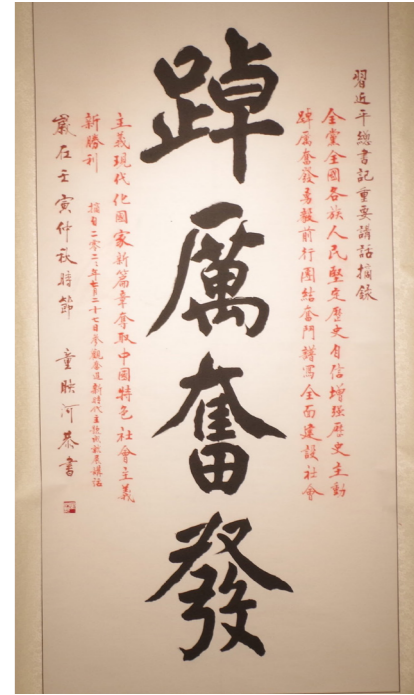 習近平總書記重要講話摘錄
全黨全國各族人民堅定歷史自信增强歷史主動
踔厲奮發勇毅前行團結奮鬥譜寫全面建設社會
踔厲奮發
主義現代化國家新篇章奪取中國特色社會主義
新勝利
摘自二零二二年七月二十七日參觀奮進新時代主題成就展講話
歲在壬寅仲秋時節 童映河恭書